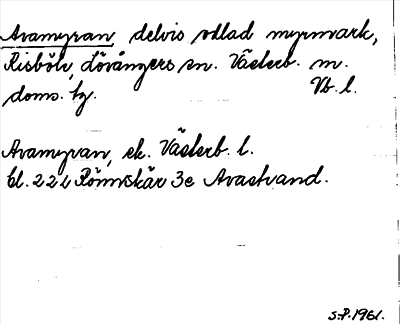 Avamyran, delvis odlad myrmark,
Risböle, Lövångers sn. Västerb. m.
doms. hg. Vb. l.
Avamyran, ek. Västerb. l.
bl. 22 L Rönnskär 3e Avastrand.
S.P. 1961.